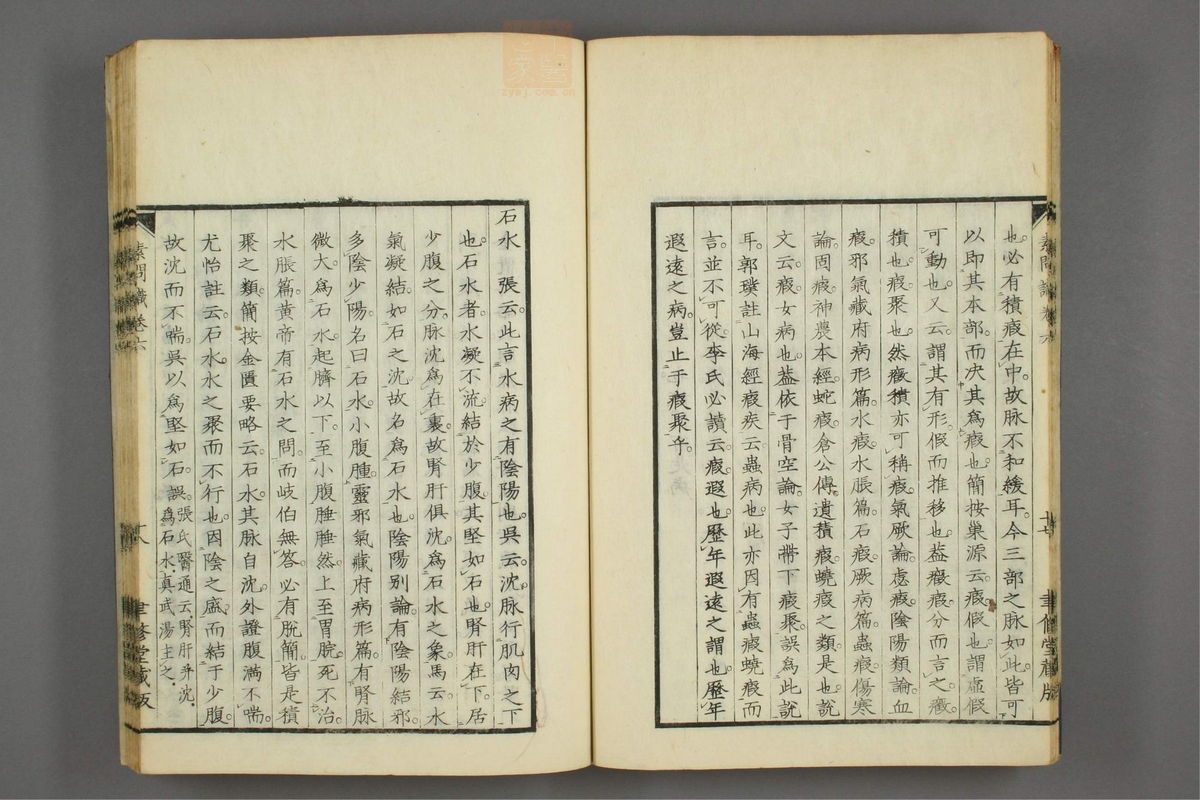 也必有積瘕在中故脉不和緩耳今三部之脉如此皆可
以即其本部而决其爲瘕也簡按巢源云瘕假也謂虛假
可動也又云謂其有形假而推移也葢癥瘕分而言之癥
積也瘕聚也然癥積亦可稱瘕氣厥論虙瘕陰陽類論血
瘕邪氣藏府病形篇水瘕水脹篇石瘕厥病篇蟲瘕傷寒
論固瘕神農本經蛇瘕倉公傳遺積瘕蟯瘕之類是也說
文云瘕女病也葢依于骨空論女子帶下瘕聚誤爲此說
耳郭璞註山海經瘕疾云蟲病也此亦因有蟲瘕蟯瘕而
言並不可從李氏必讀云瘕遐也歷年遐遠之謂也歷年
遐遠之病豈止于瘕聚乎
素問識卷六
聿修堂藏版
石水 張云此言水病之有陰陽也吳云沈脉行肌肉之下
也石水者水凝不流結於少腹其堅如石也腎肝在下居
少腹之分脉沈爲在裏故腎肝俱沈爲石水之象馬云水
氣凝結如石之沈故名爲石水也陰陽别論有陰陽結邪
多陰少陽名曰石水小腹腫靈邪氣藏府病形篇有腎脉
微大爲石水起臍以下至小腹腄腄然上至胃脘死不治
水脹篇黄帝有石水之問而岐伯無答必有脫簡皆是積
聚之類簡按金匱要略云石水其脉自沈外證腹滿不喘
尤怡註云石水水之聚而不行也因陰之盛而結于少腹
故沈而不喘吳以爲堅如石誤張氏醫通云腎肝并沈爲石水眞武湯主之
素問識卷六
十八
聿修堂藏版
zysj.com.cn